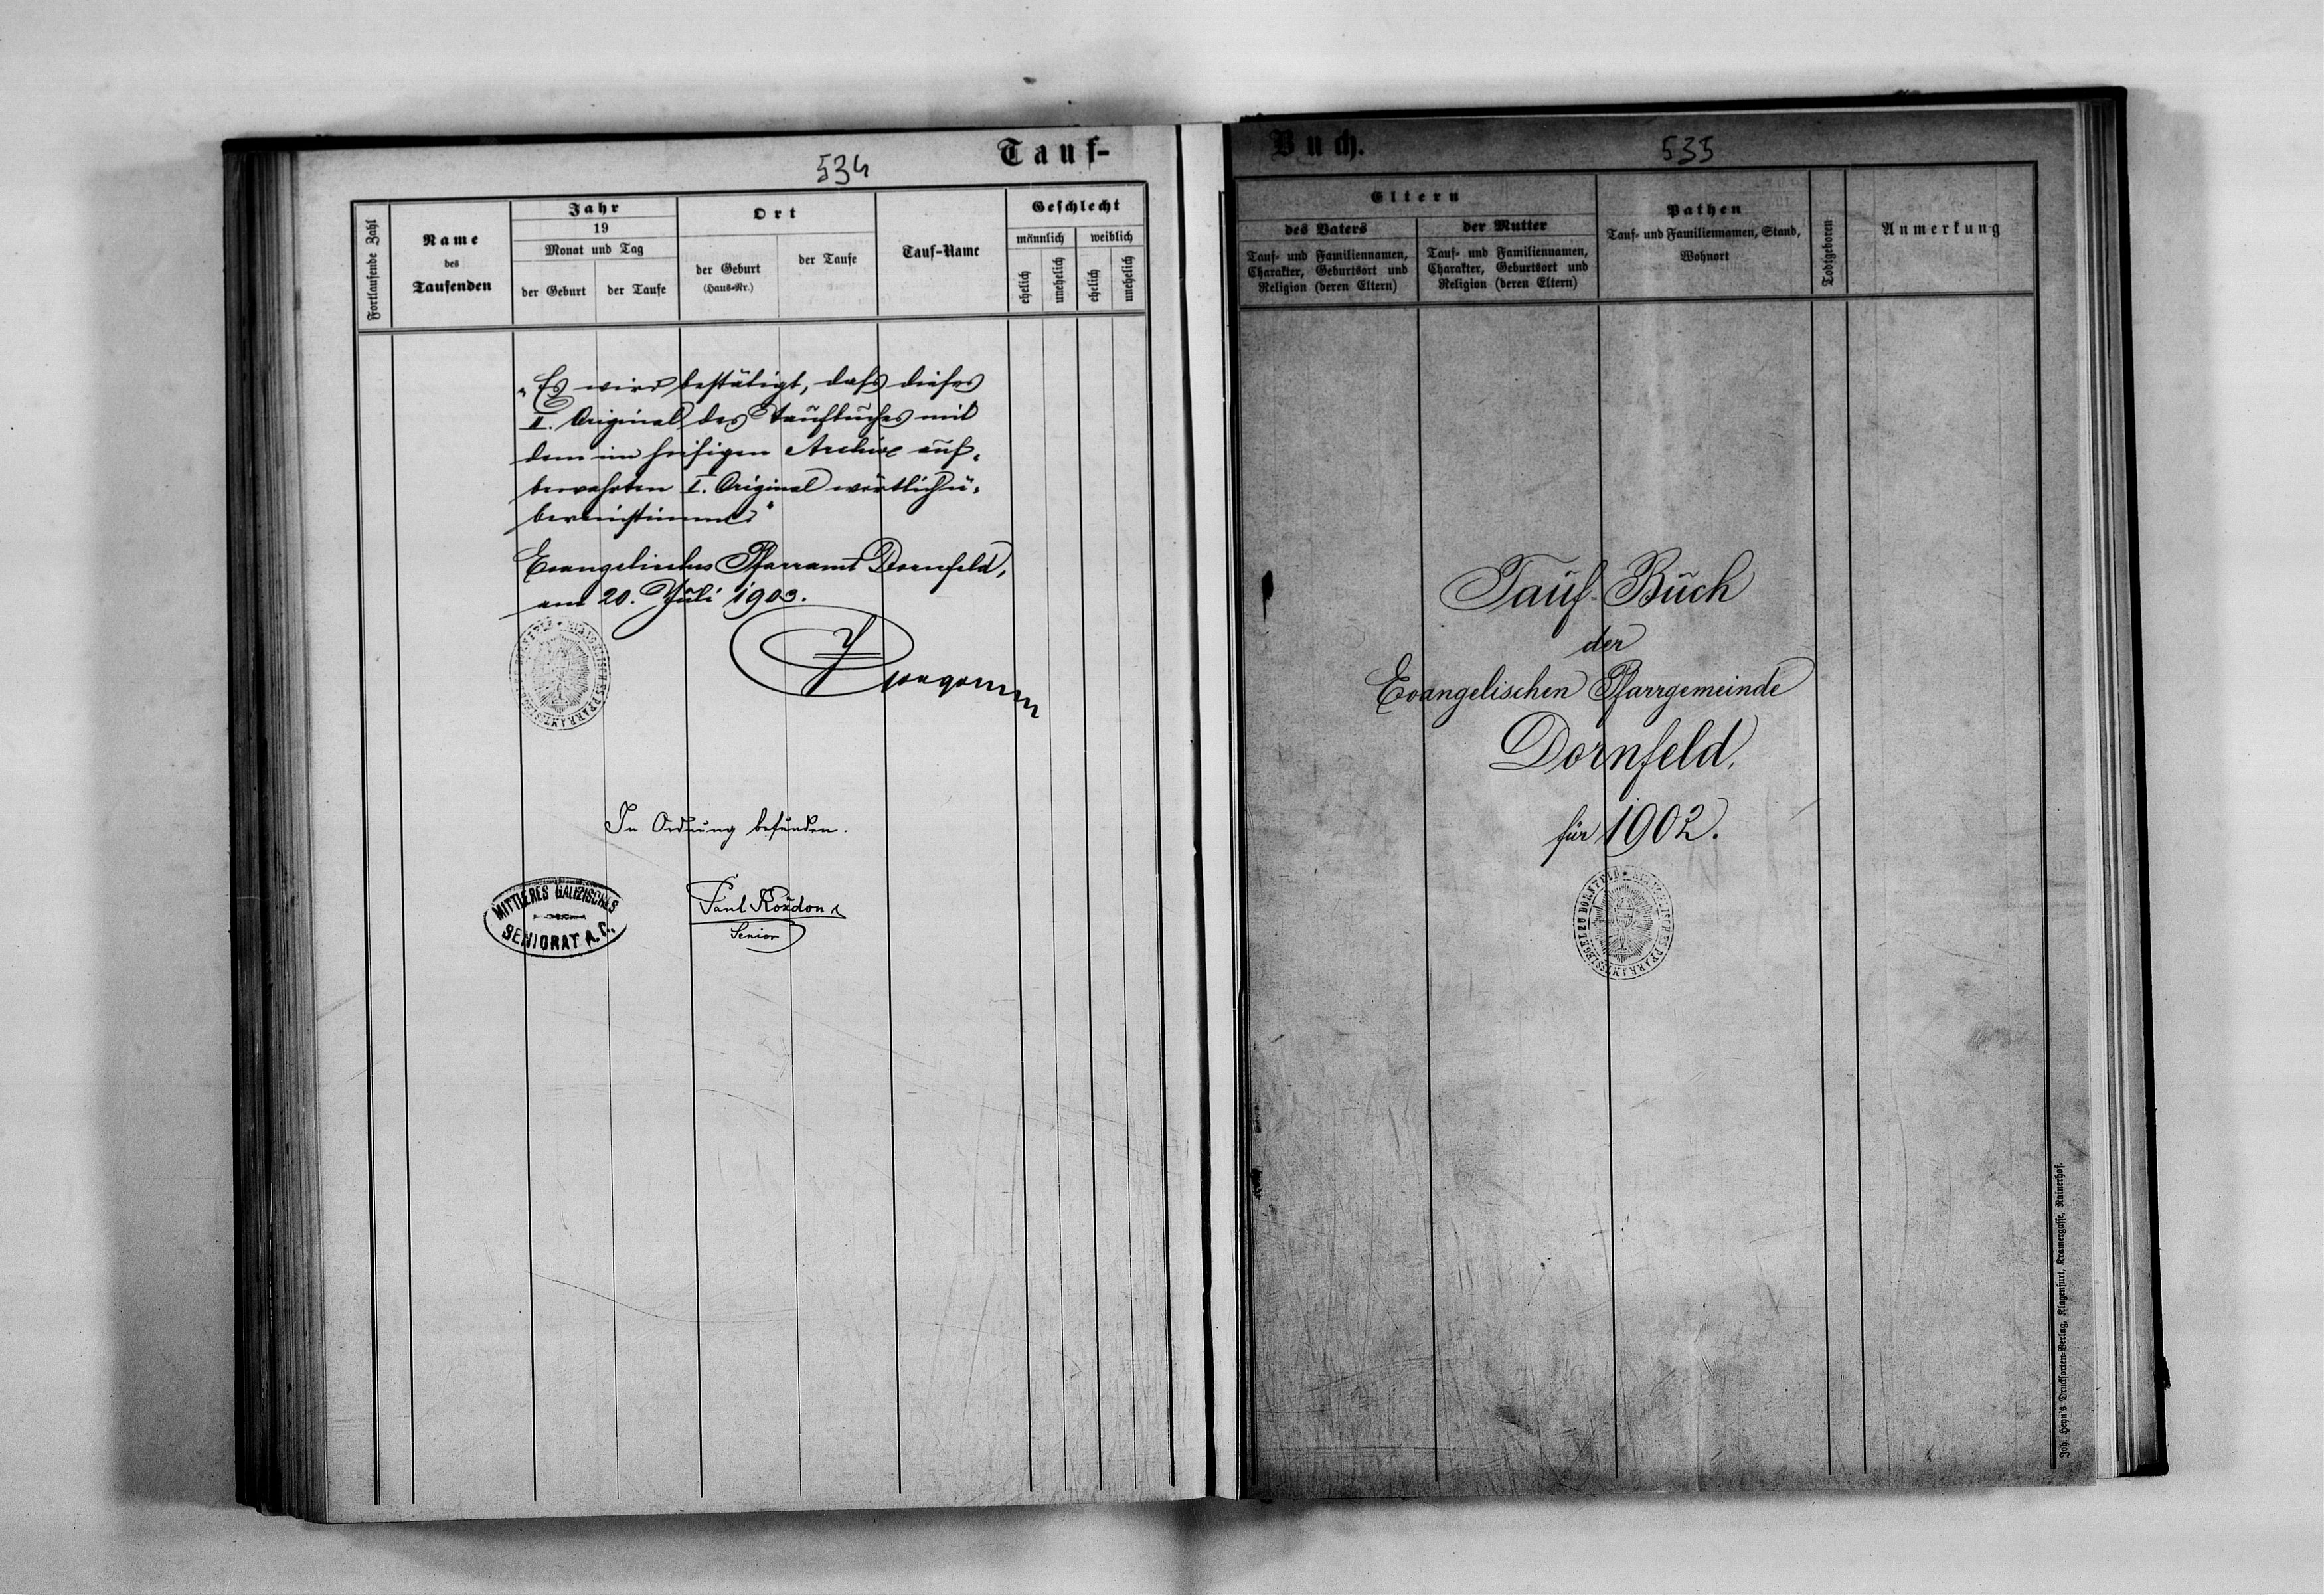 534
Tauf-
Fortlaufende Zahl
Name
des
Taufenden
Jahr
19
Monat und Tag
der Geburt
der Taufe
Ort
der Geburt
(Haus-Nr.)
der Taufe
Tauf-Name
Geschlecht
männlich
weiblich
ehelich
unehelich
ehelich
unehelich
„Es wird bestätigt, daß dieses
II. Original des Taufbuches mit
dem im hiesigen Archive auf-
bewahrten I. Original wörtlich ü-
bereinstimmt"
Evangelisches Pfarramt Dornfeld,
am 20. Juli 1903.
In Ordnung befunden.
MITTLERES GALIZISCHES
SENIORAT A. C.
Paul Rozdon
Senior
Buch.
535
Eltern
des Vaters
Tauf- und Familiennamen,
Charakter, Geburtsort und
Religion (deren Eltern)
der Mutter
Tauf- und Familiennamen,
Charakter, Geburtsort und
Religion (deren Eltern)
Pathen
Tauf- und Familiennamen, Stand,
Wohnort
Todtgeboren
Anmerkung
Tauf-Buch
der
Evangelischen Pfarrgemeinde
Dornfeld.
für 1902.
EVANGELISCHES PFARRAMTSSIEGEL ZU DORNFELD
Joh. Heyn's Drucksorten-Verlag, Klagenfurt, Kramergasse, Rainerhof.